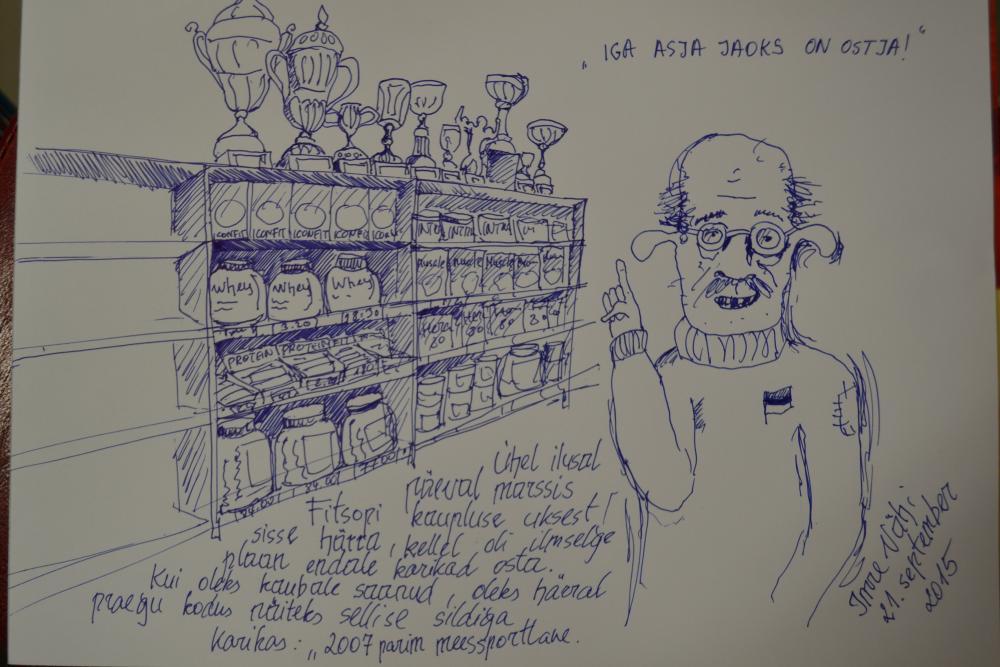 „IGA ASJA JAOKS ON OSTJA!“
ICONFIT ICONFIT ICONFIT ICONFIT
INTRA INTRA INTRA
Muscle Muscle Muscle
Whey Whey Whey
3.20 18.30
80 80 80
PROTEIN PROTEIN
Ühel ilusal
päeval marssis
Fitsopi kaupluse uksest
sisse härra, kellel oli ilmselge
plaan endale karikad osta.
Kui oleks kaubale saanud, oleks häeral
praegu kodus näiteks sellise sildiga
karikas: „2007 parim meessportlane.
Imre Vähi
21. september
2015